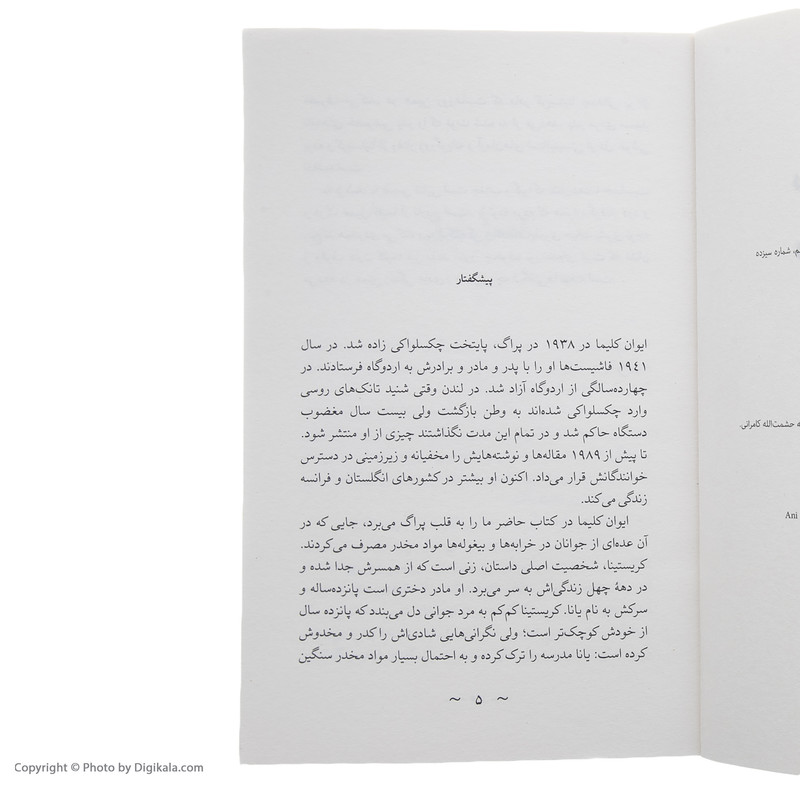 پیشگفتار
ایوان کلیما در ۱۹۳۸ در پراگ، پایتخت چکسلواکی زاده شد. در سال
۱۹۴۱ فاشیست‌ها او را با پدر و مادر و برادرش به اردوگاه فرستادند. در
چهارده‌سالگی از اردوگاه آزاد شد. در لندن وقتی شنید تانک‌های روسی
وارد چکسلواکی شده‌اند به وطن بازگشت ولی بیست سال مغضوب
دستگاه حاکم شد و در تمام این مدت نگذاشتند چیزی از او منتشر شود.
تا پیش از ۱۹۸۹ مقاله‌ها و نوشته‌هایش را مخفیانه و زیرزمینی در دسترس
خوانندگانش قرار می‌داد. اکنون او بیشتر در کشورهای انگلستان و فرانسه
زندگی می‌کند.
ایوان کلیما در کتاب حاضر ما را به قلب پراگ می‌برد، جایی که در
آن عده‌ای از جوانان در خرابه‌ها و بیغوله‌ها مواد مخدر مصرف می‌کردند.
کریستینا، شخصیت اصلی داستان، زنی است که از همسرش جدا شده و
در دههٔ چهل زندگی‌اش به سر می‌برد. او مادر دختری است پانزده‌ساله و
سرکش به نام یانا. کریستینا کم‌کم به مرد جوانی دل می‌بندد که پانزده سال
از خودش کوچک‌تر است؛ ولی نگرانی‌هایی شادی‌اش را کدر و مخدوش
کرده است: یانا مدرسه را ترک کرده و به احتمال بسیار مواد مخدر سنگین
~ ۵ ~
شماره سیزده
حشمت‌الله کامرانی.
Ani
Copyright © Photo by Digikala.com